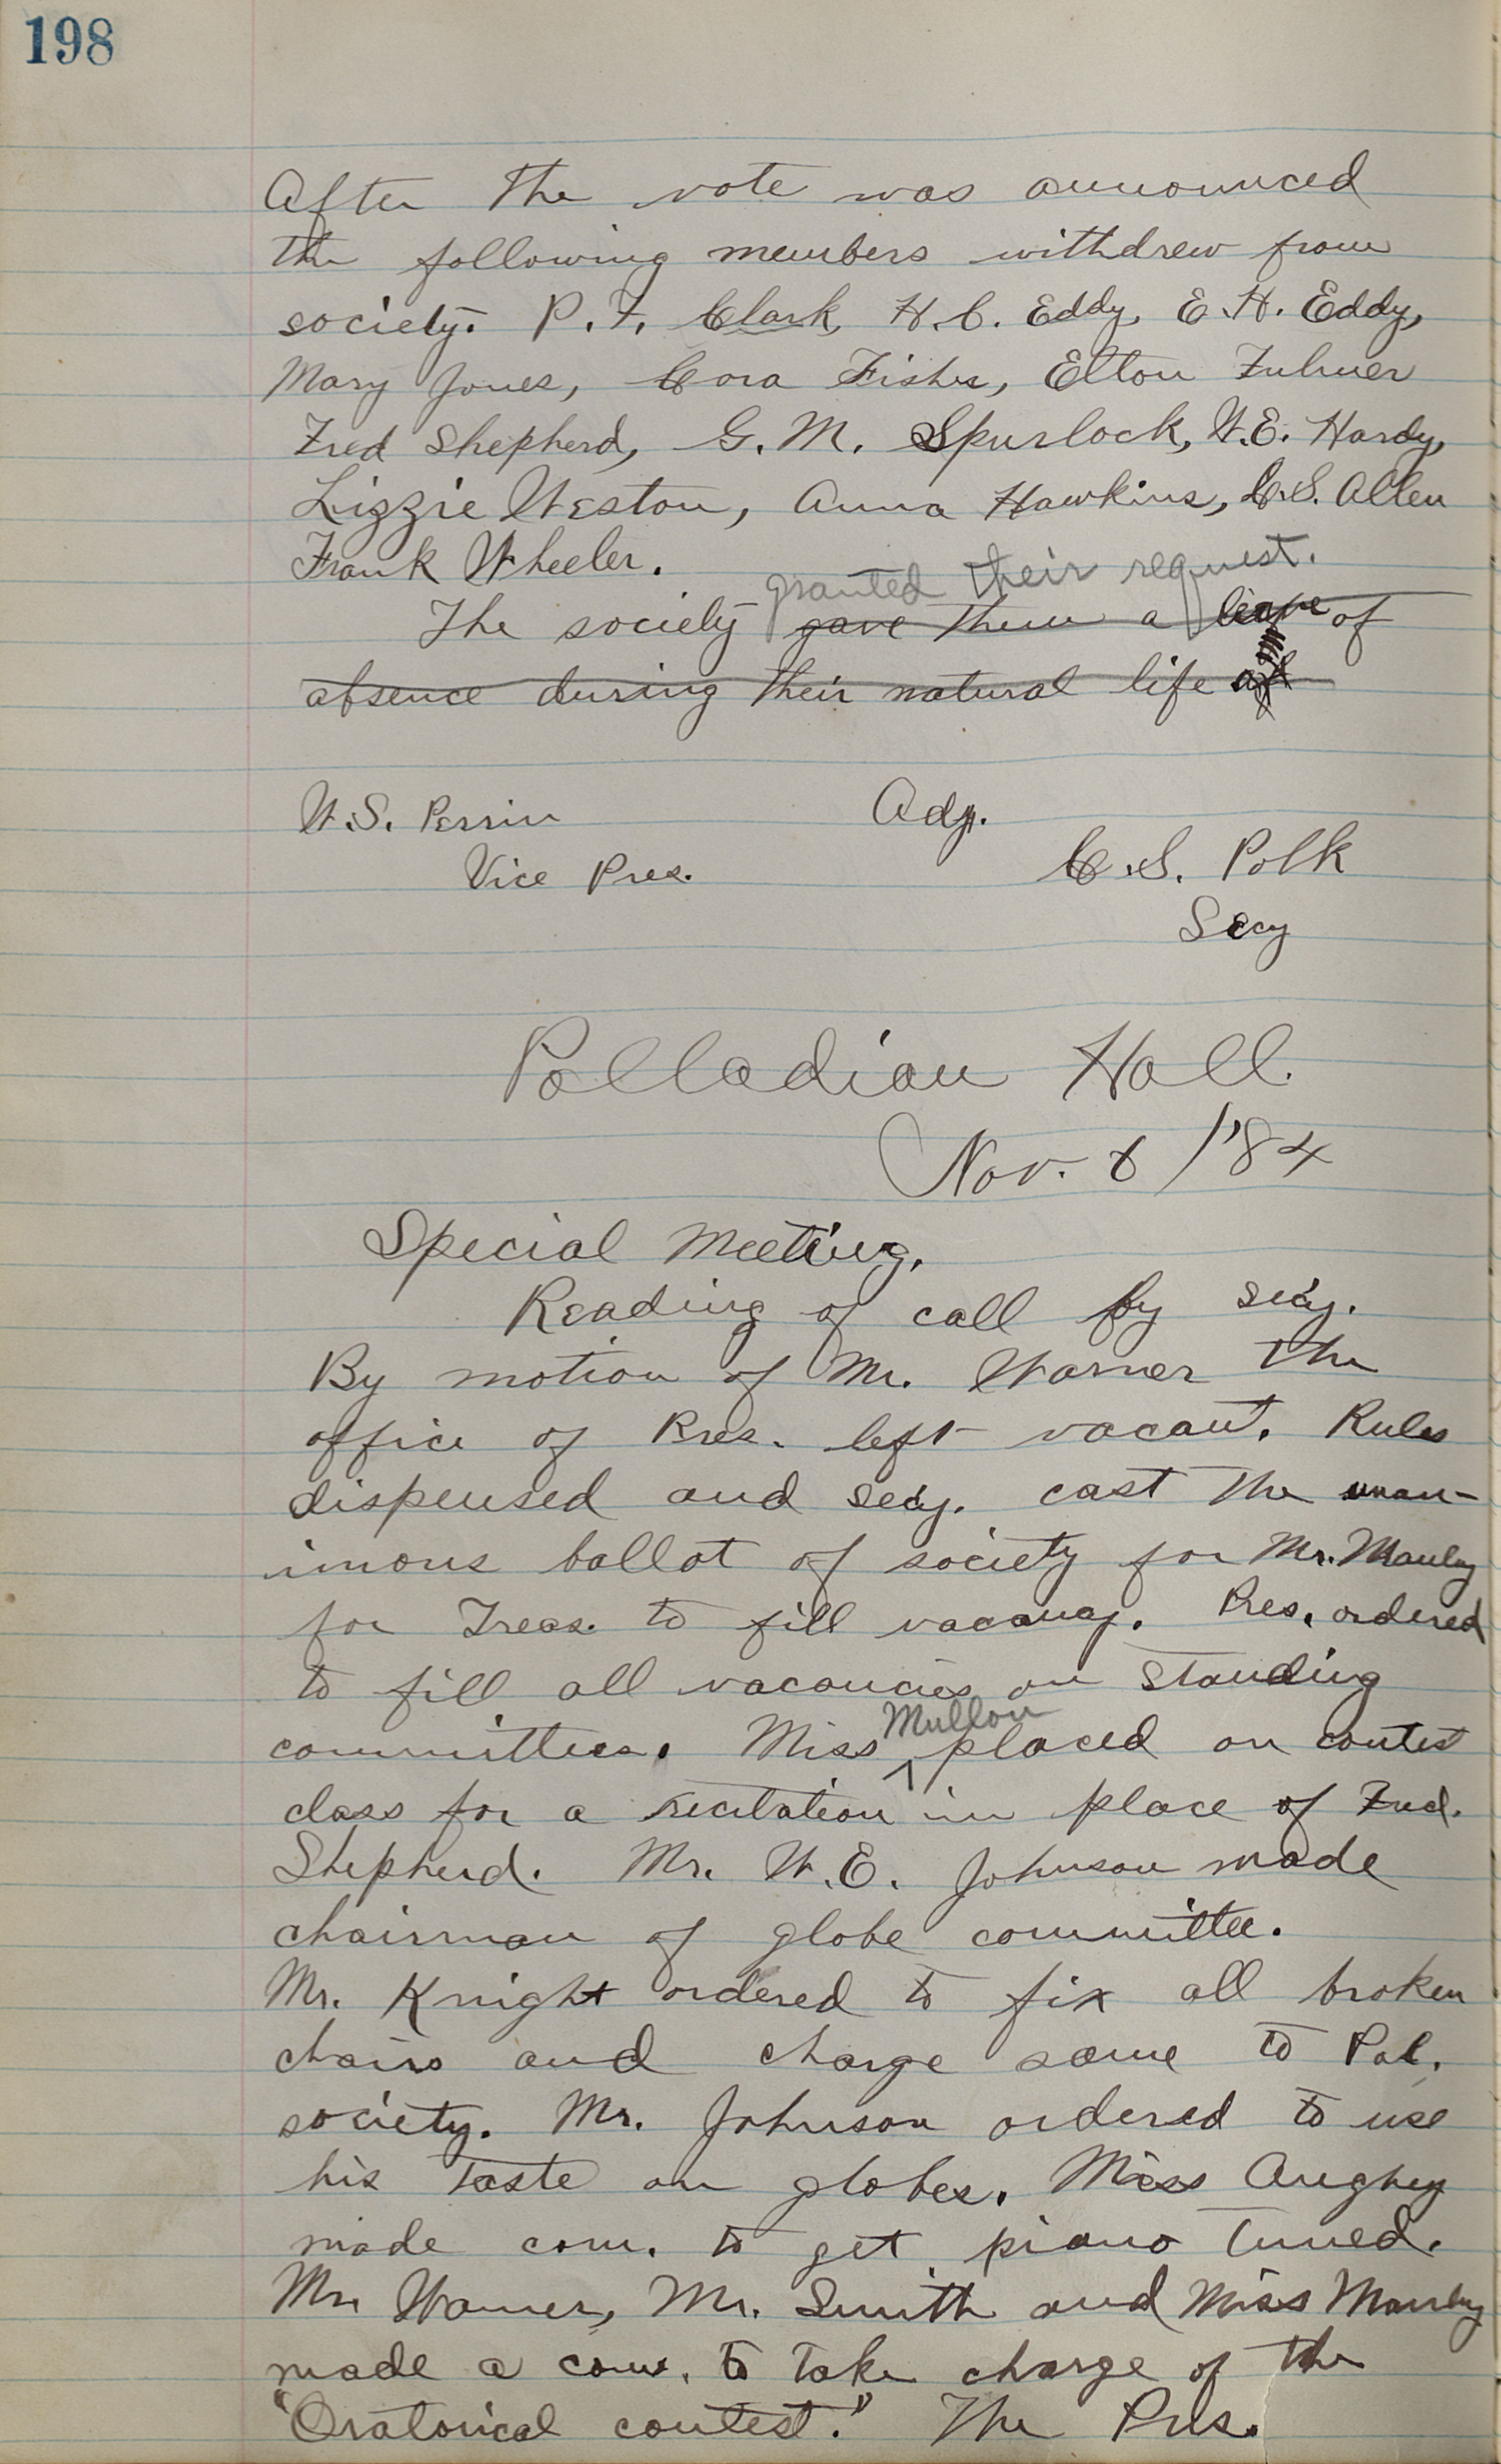 198
After the vote was announced
the following members withdrew from
society. P. F. Clark, H. C. Eddy, E. H. Eddy,
Mary Jones, Cora Fisher, Elton Fulmer
Fred Shepherd, G. M. Spurlock, W. E. Hardy,
Lizzie Weston, Anna Hawkins, C. S. Allen
Frank Wheeler.
granted their request.
The society gave them a leave of
absence during their natural life
W. S. Perrin Adj.
Vice Pres. C. S. Polk
Secy
Palladian Hall.
Nov. 6 /'84
Special Meeting.
Reading of call by Secy.
By motion of Mr. Warner the
office of Pres. left vacant. Rules
dispensed and Secy. cast the unan-
imous ballot of society for Mr. Manley
for Treas. to fill vacancy. Pres. ordered
to fill all vacancies on standing
Mullon
committees. Miss ^ placed on contest
class for a recitation in place of Fred.
Shepherd. Mr. W. E. Johnson made
chairman of globe committee.
Mr. Knight ordered to fix all broken
chairs and charge same to Pal.
society. Mr. Johnson ordered to use
his taste on globes. Miss Aughey
made com. to get piano tuned.
Mr. Warner, Mr. Smith and Miss Manley
made a com. to take charge of the
"Oratorical contest." The Pres.